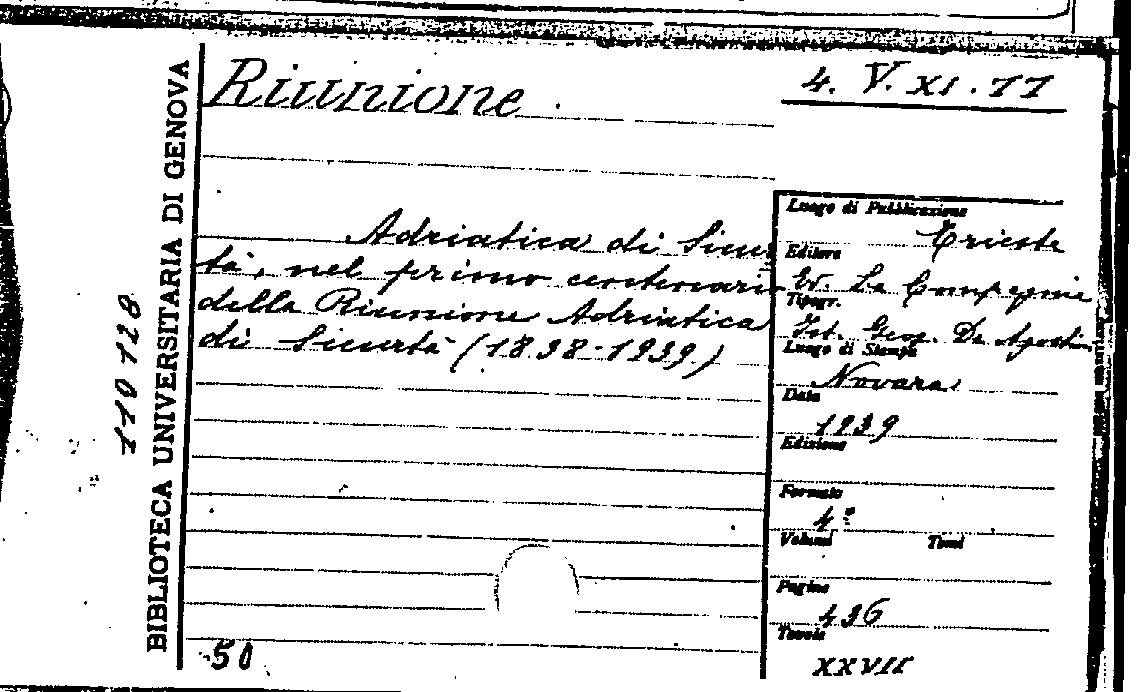 Riunione
4. V. XI. 77
Adriatica di Sicur
tà, nel primo centenario
della Riunione Adriatica
di Sicurtà (1838-1939)
Luogo di Pubblicazione
Trieste
Editore
Ed. La Compagnia
Tipogr.
Ist. Geog. De Agostini
Luogo di Stampa
Novara
Data
1939
Edizione
Formato
4º
Volumi Tomi
Pagine
436
Tavole
XXVII
50
BIBLIOTECA UNIVERSITARIA DI GENOVA
110128